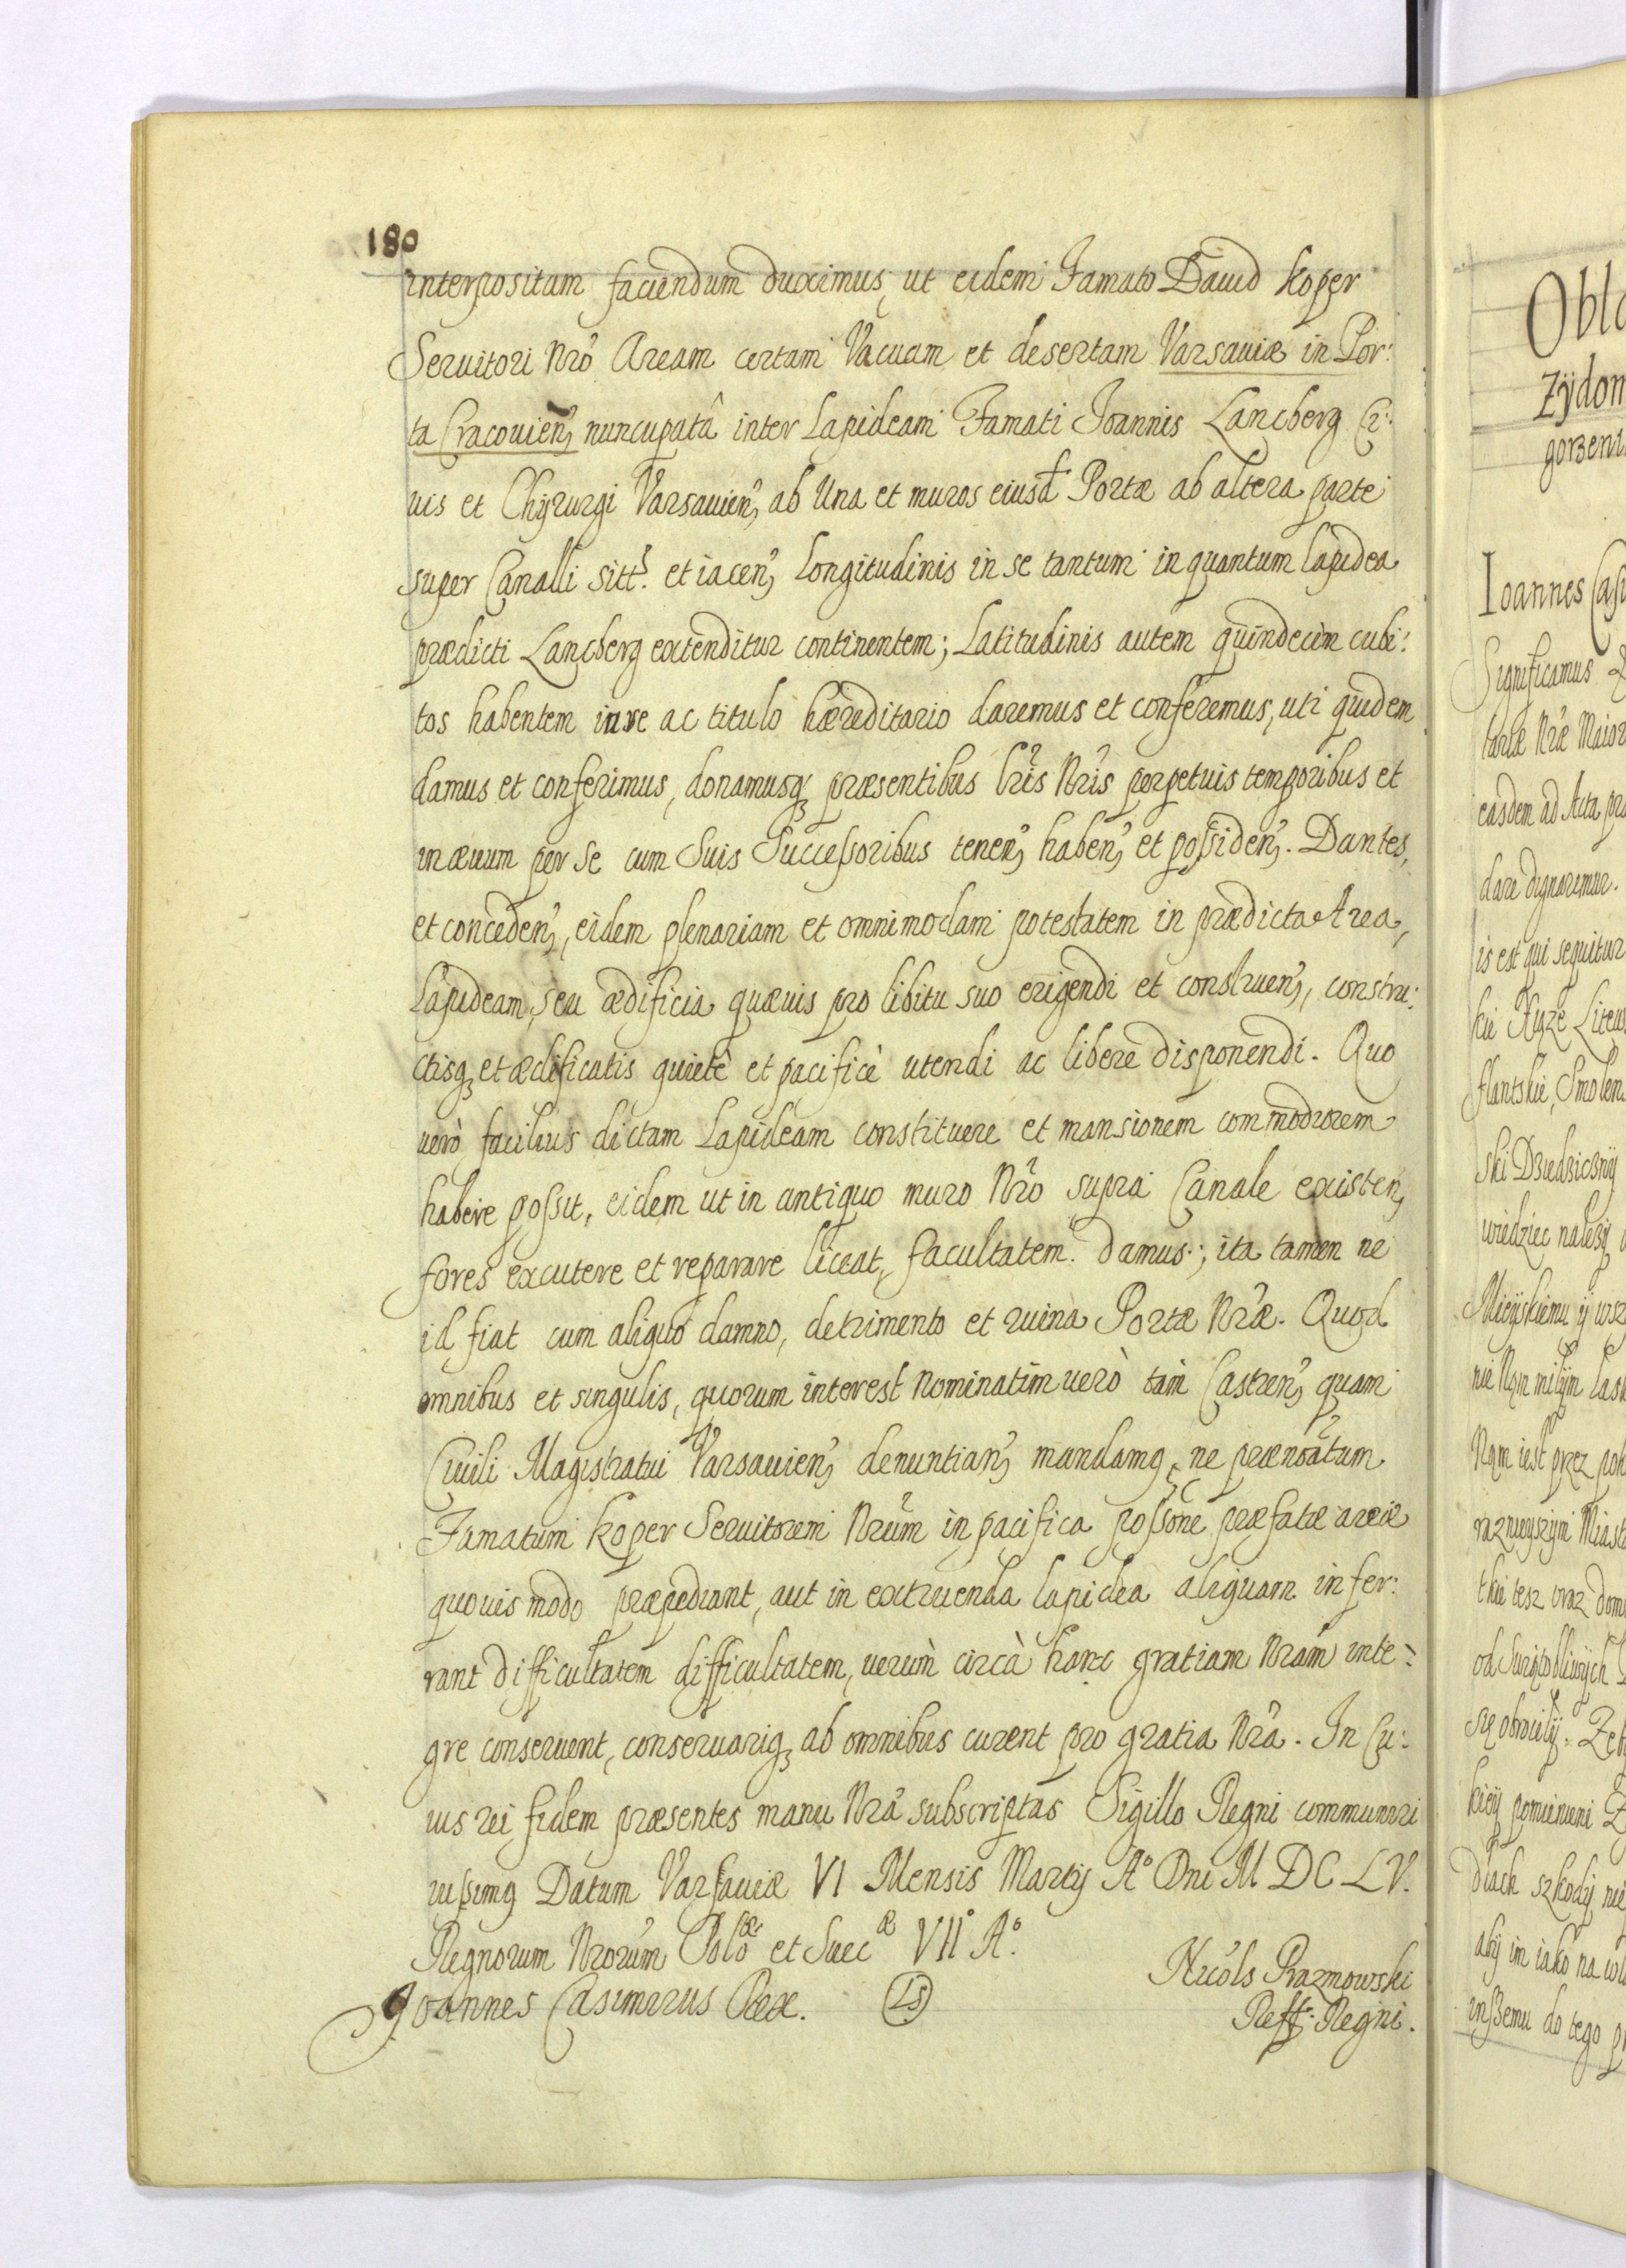 180
interpositam faciendum duximus, ut eidem Famato Dauid Koper
Seruitori Nro Aream certam Vacuam et desertam Varsauiæ in Por:
ta Cracouien, nuncupatâ inter Lapideam Famati Joannis Lancberg Ci:
uis et Chÿrurgi Varsauien, ab Una et muros eiusd Portæ ab altera parte
super Canalli sitt. et iacen, Longitudinis in se tantum in quantum lapidea
prædicti Lancberg extenditur continentem; Latitudinis autem quindecim cubi:
tos habentem iure ac titulo hæreditario daremus et conferemus, uti quidem
damus et conferimus, donamusq præsentibus lris Nris perpetuis temporibus et
in æuum per Se cum Suis Successoribus tenen, haben, et possiden,. Dantes,
et conceden, eidem plenariam et omnimodam potestatem in prædicta Area,
Lapideam, seu ædificia quæuis pro libitu suo erigendi et construen, constru:
ctisq, et ædificatis quietè et pacificè utendi ac liberè disponendi. Quo
uerò facilius dictam Lapideam constituere et mansionem commodiorem
habere possit, eidem ut in antiquo muro Nro supra Canale existen,
fores excutere et reparare liceat, facultatem damus; ita tamen ne
id fiat cum aliquo damno, detrimento et ruina Portæ Nræ. Quod
omnibus et singulis, quorum interest Nominatim uerò tàm Castren, quam
Ciuili Magistratui Varsauien, denuntian, mandamq, ne prænoâtum
Famatum Koper Seruitorem Nrum in pacifica possone præfatæ areæ
quouis modo præpediant, aut in extruenda lapidea aliquam infer:
rant difficultatem difficultatem, uerùm circà hanc gratiam Nram inte:
gre conseruent, conseruariq, ab omnibus curent pro gratia Nra. In Cu:
ius rei fidem præsentes manu Nra subscriptas Sigillo Regni communiri
iussimq Datum Varsauiæ VI Mensis Martij A° Dni M DC LV.
Regnorum Nrorum Poloæ et Suecæ VII° A°.
Joannes Casimirus Rex. LS
Nicols Prazmowski
Reff: Regni.
Obla
Zÿdom
Ioannes Cas
Significamus
Nræ Maior
easdem ad Acta pra
dare dignaremur.
is est qui sequitur
flantskie, Smolen
od
kieÿ
do tego